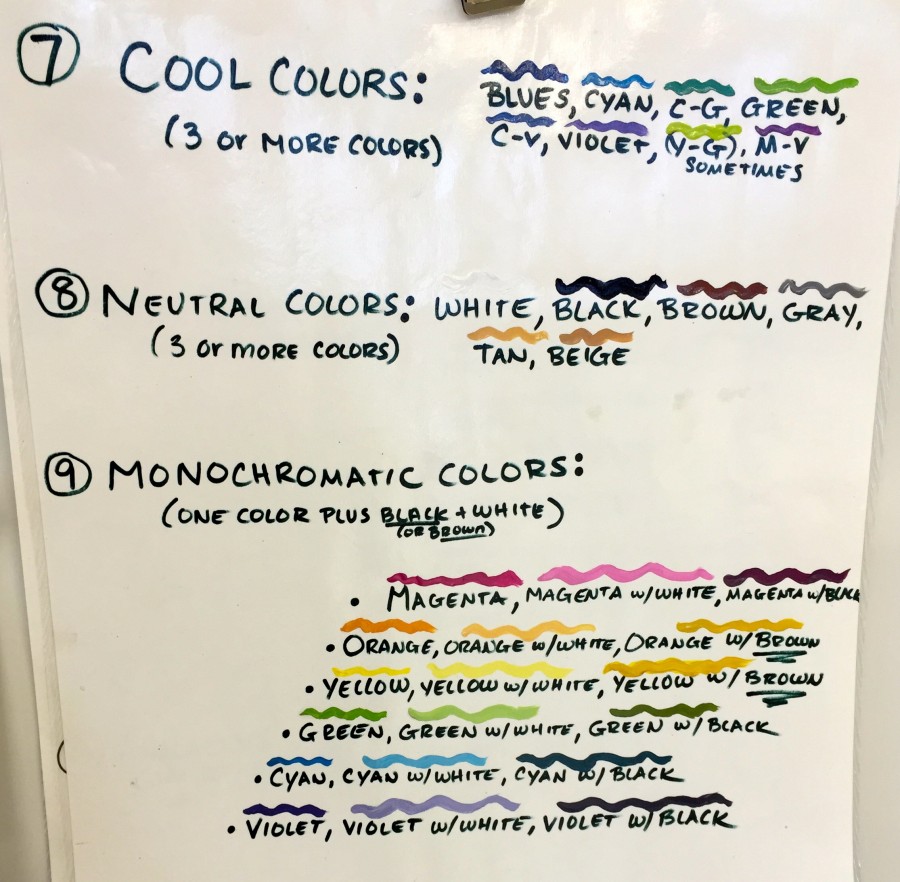 7 COOL COLORS: BLUES, CYAN, C-G, GREEN,
(3 or MORE COLORS) C-V, VIOLET, (Y-G), M-V
SOMETIMES
8 NEUTRAL COLORS: WHITE, BLACK, BROWN, GRAY,
(3 or MORE COLORS) TAN, BEIGE
9 MONOCHROMATIC COLORS:
(ONE COLOR PLUS BLACK + WHITE)
(OR BROWN)
• MAGENTA, MAGENTA w/WHITE, MAGENTA w/BLACK
• ORANGE, ORANGE w/WHITE, ORANGE w/BROWN
• YELLOW, YELLOW w/WHITE, YELLOW w/BROWN
• GREEN, GREEN w/WHITE, GREEN w/BLACK
• CYAN, CYAN w/WHITE, CYAN w/BLACK
• VIOLET, VIOLET w/WHITE, VIOLET w/BLACK